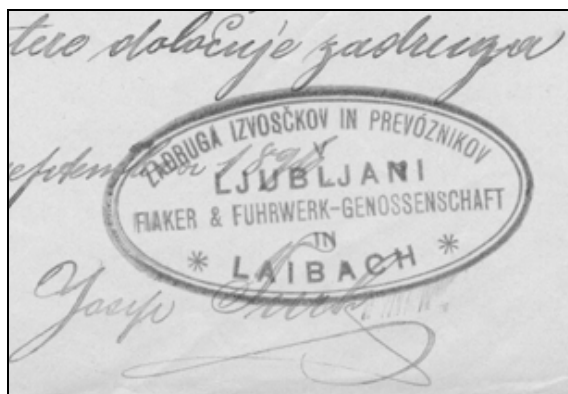 tero določuje zadruga
septembra 189
ZADRUGA IZVOSČKOV IN PREVÓZNIKOV
V
LJUBLJANI
FIAKER & FUHRWERK-GENOSSENSCHAFT
IN
* LAIBACH *
Josip Turk